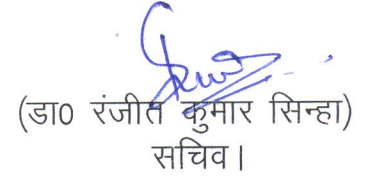 (डा0 रंजीत कुमार सिन्हा)
सचिव।